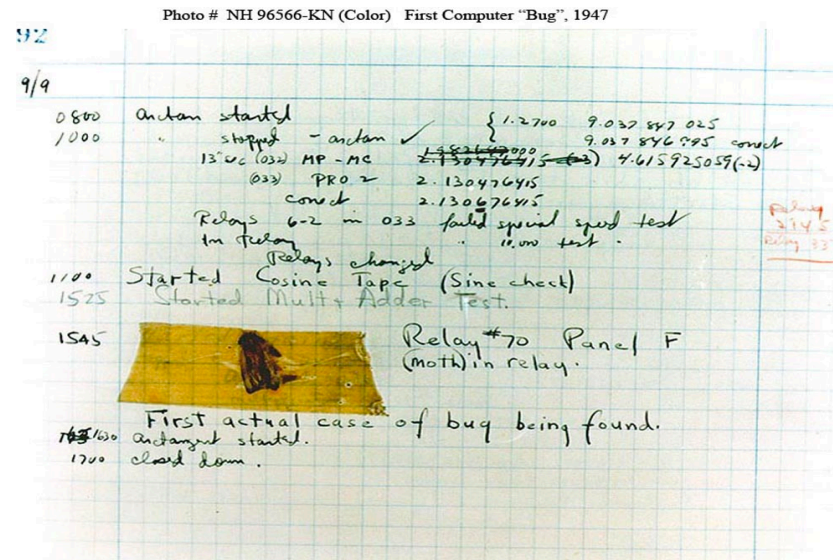 Photo # NH 96566-KN (Color) First Computer “Bug”, 1947
92
9/9
0800 arctan started { 1.2700 9.037 847 025
1000 " stopped - arctan ✓ 9.037 846 995 conect
13"uc (032) MP - MC 2.130476415 (-3) 4.615925059(-2)
(033) PRO 2 2.130476415
conect 2.130676415
Relays 6-2 in 033 failed special speed test
In Relay " 10,000 test .
Relays changed
1100 Started Cosine Tape (Sine check)
1525 Started Mult + Adder Test.
1545 Relay #70 Panel F
(moth) in relay.
First actual case of bug being found.
1630 arctangent started.
1700 closed down .
Relay
Relay 33